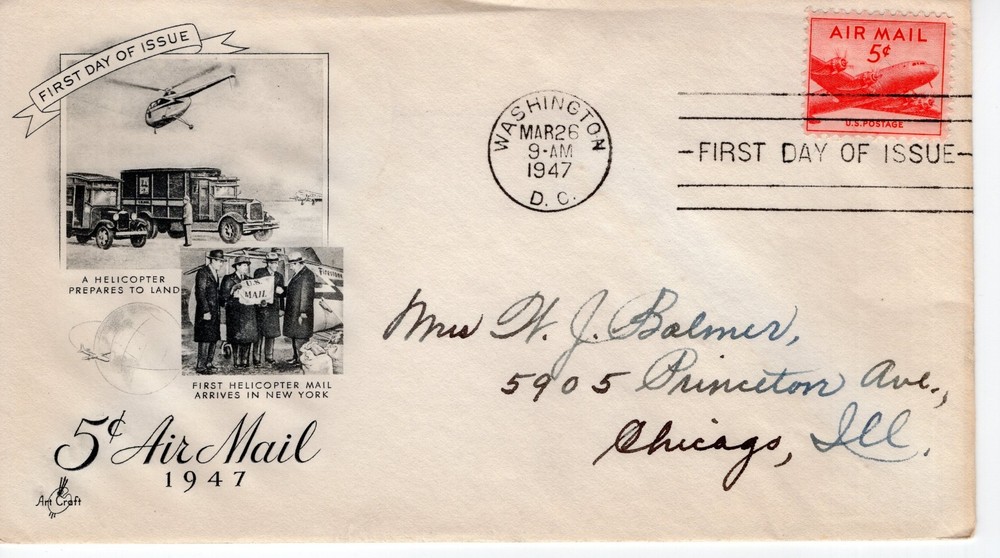 FIRST DAY OF ISSUE
A HELICOPTER
PREPARES TO LAND
U.S.
MAIL
FIRST HELICOPTER MAIL
ARRIVES IN NEW YORK
5¢ Air Mail
1947
Art Craft
WASHINGTON
MAR 26
9-AM
1947
D. C.
AIR MAIL
5¢
U.S. POSTAGE
-FIRST DAY OF ISSUE-
Mrs W. J. Balmer,
5905 Princeton Ave.,
Chicago, Ill.